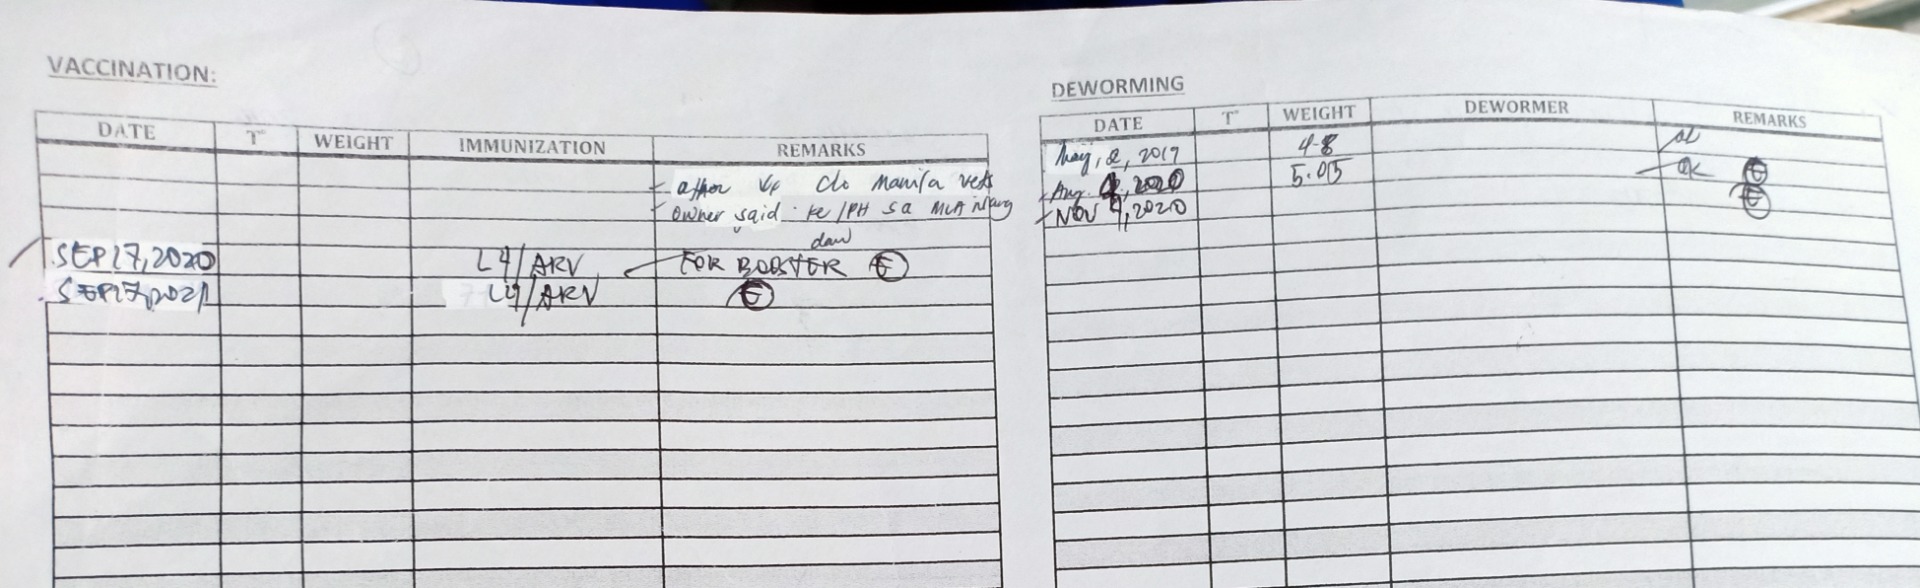 VACCINATION:
DATE T° WEIGHT IMMUNIZATION REMARKS
- other Vx c/o Manila vets
- owner said : /PH sa MLA
daw
SEP 17, 2020 L4/ARV FOR BOOSTER E
SEP 17, 2021 L4/ARV E
DEWORMING
DATE T° WEIGHT DEWORMER REMARKS
May, 2, 2019 4.8
Aug. 2020 5.05 ok E
NOV 9, 2020 E